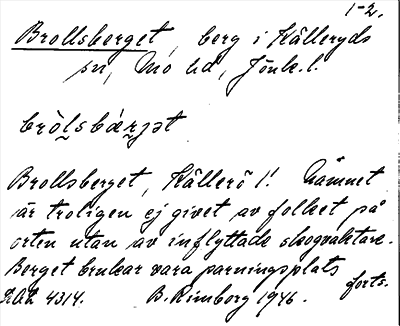 1-2.
Brollsberget, berg i Källeryds
sn, Mo hd, Jönk. l.
bròlsbærjət
Brollsberget, Källerö 1! Namnet
är troligen ej givet av folket på
orten utan av inflyttade skogvaktare.
Berget brukar vara parningsplats
forts.
RAÄ 4314. B. Rimborg 1946.